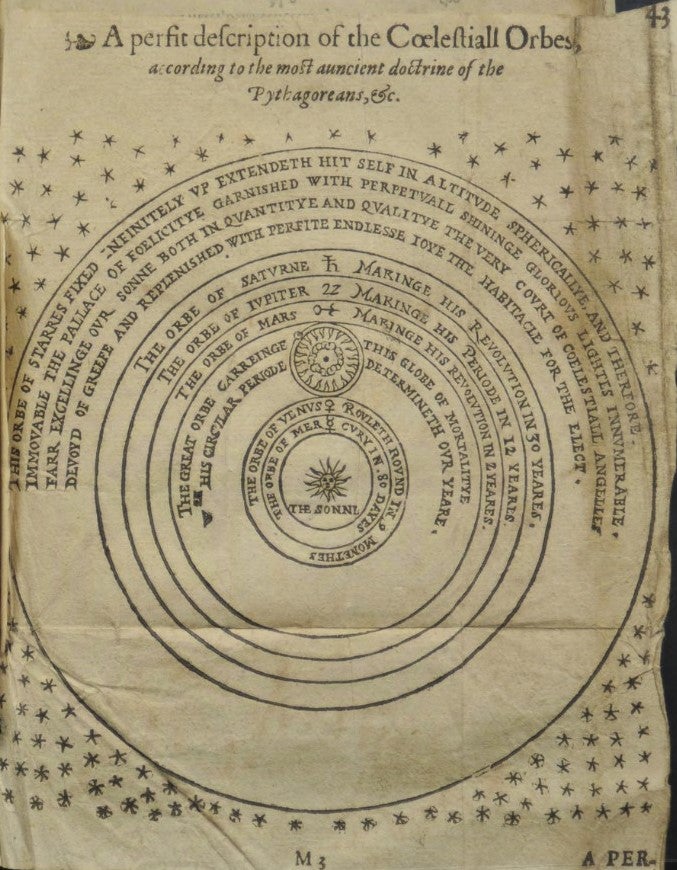 43
A perfit description of the Cœlestiall Orbes,
according to the most auncient doctrine of the
Pythagoreans, &c.
THIS ORBE OF STARRES FIXED INFINITELY VP EXTENDETH HIT SELF IN ALTITVDE SPHERICALLYE, AND THERFORE
IMMOVABLE THE PALLACE OF FOELICITYE GARNISHED WITH PERPETVALL SHININGE GLORIOVS LIGHTES INNVMERABLE.
FARR EXCELLINGE OVR SONNE BOTH IN QVANTITYE AND QVALITYE THE VERY COVRT OF COELESTIALL ANGELLES
DEVOYD OF GREEFE AND REPLENISHED WITH PERFITE ENDLESSE IOYE THE HABITACLE FOR THE ELECT.
THE ORBE OF SATVRNE ♄ MAKINGE HIS REVOLVTION IN 30 YEARES.
THE ORBE OF IVPITER ♃ MAKINGE HIS PERIODE IN 12 YEARES.
THE ORBE OF MARS ♂ MAKINGE HIS REVOLVTION IN 2 YEARES.
THE GREAT ORBE CARREINGE THIS GLOBE OF MORTALITYE
HIS CIRCVLAR PERIODE DETERMINETH OVR YEARE.
THE ORBE OF VENVS ♀ ROVLETH ROVND IN 9 MONETHES
THE ORBE OF MER ☿ CVRY IN 80 DAYES
THE SONNE
M 3
A PER-